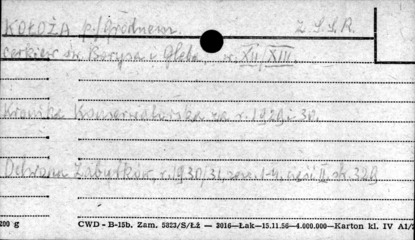 KOŁOŻA p/Grodnem. Z.S.S.R.
cerkiew św. Borysa i Gleba, w. XII/XIII.
Kronika Konserwatorska za r. 1929 i 30.
Ochrona Zabytków, r. 1930/31, zesz. 1-4, część II, str. 329
200 g CWD - B-15b. Zam. 5823/S/Łż — 3016—Łak—15.11.56—4.000.000—Karton kl. IV A1/